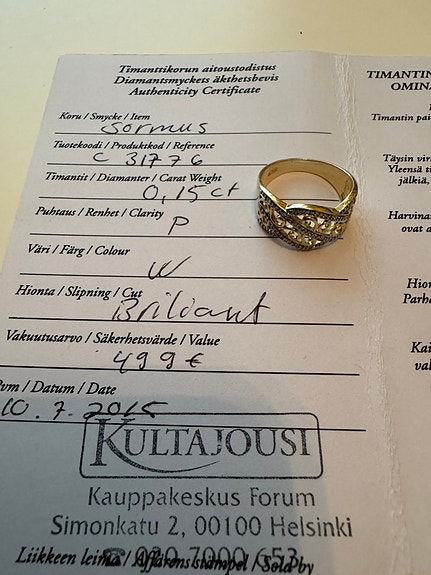 Timanttikorun aitoustodistus
Diamantsmyckets äkthetsbevis
Authenticity Certificate
Koru / Smycke / Item
Sormus
Tuotekoodi / Produktkod / Reference
C 31776
Timantit / Diamanter / Carat Weight
0,15 ct
Puhtaus / Renhet / Clarity
P
Väri / Färg / Colour
W
Hionta / Slipning / Cut
Briliant
Vakuutusarvo / Säkerhetsvärde / Value
499 €
Pvm / Datum / Date
10.7.2015
KULTAJOUSI
Kauppakeskus Forum
Simonkatu 2, 00100 Helsinki
Liikkeen leima / Affärens stämpel / Sold by
TIMANTIN
OMINA
Timantin pai
Täysin vir
Yleensä ti
jälkiä,
Harvinai
ovat a
Hion
Parha
Kai
val